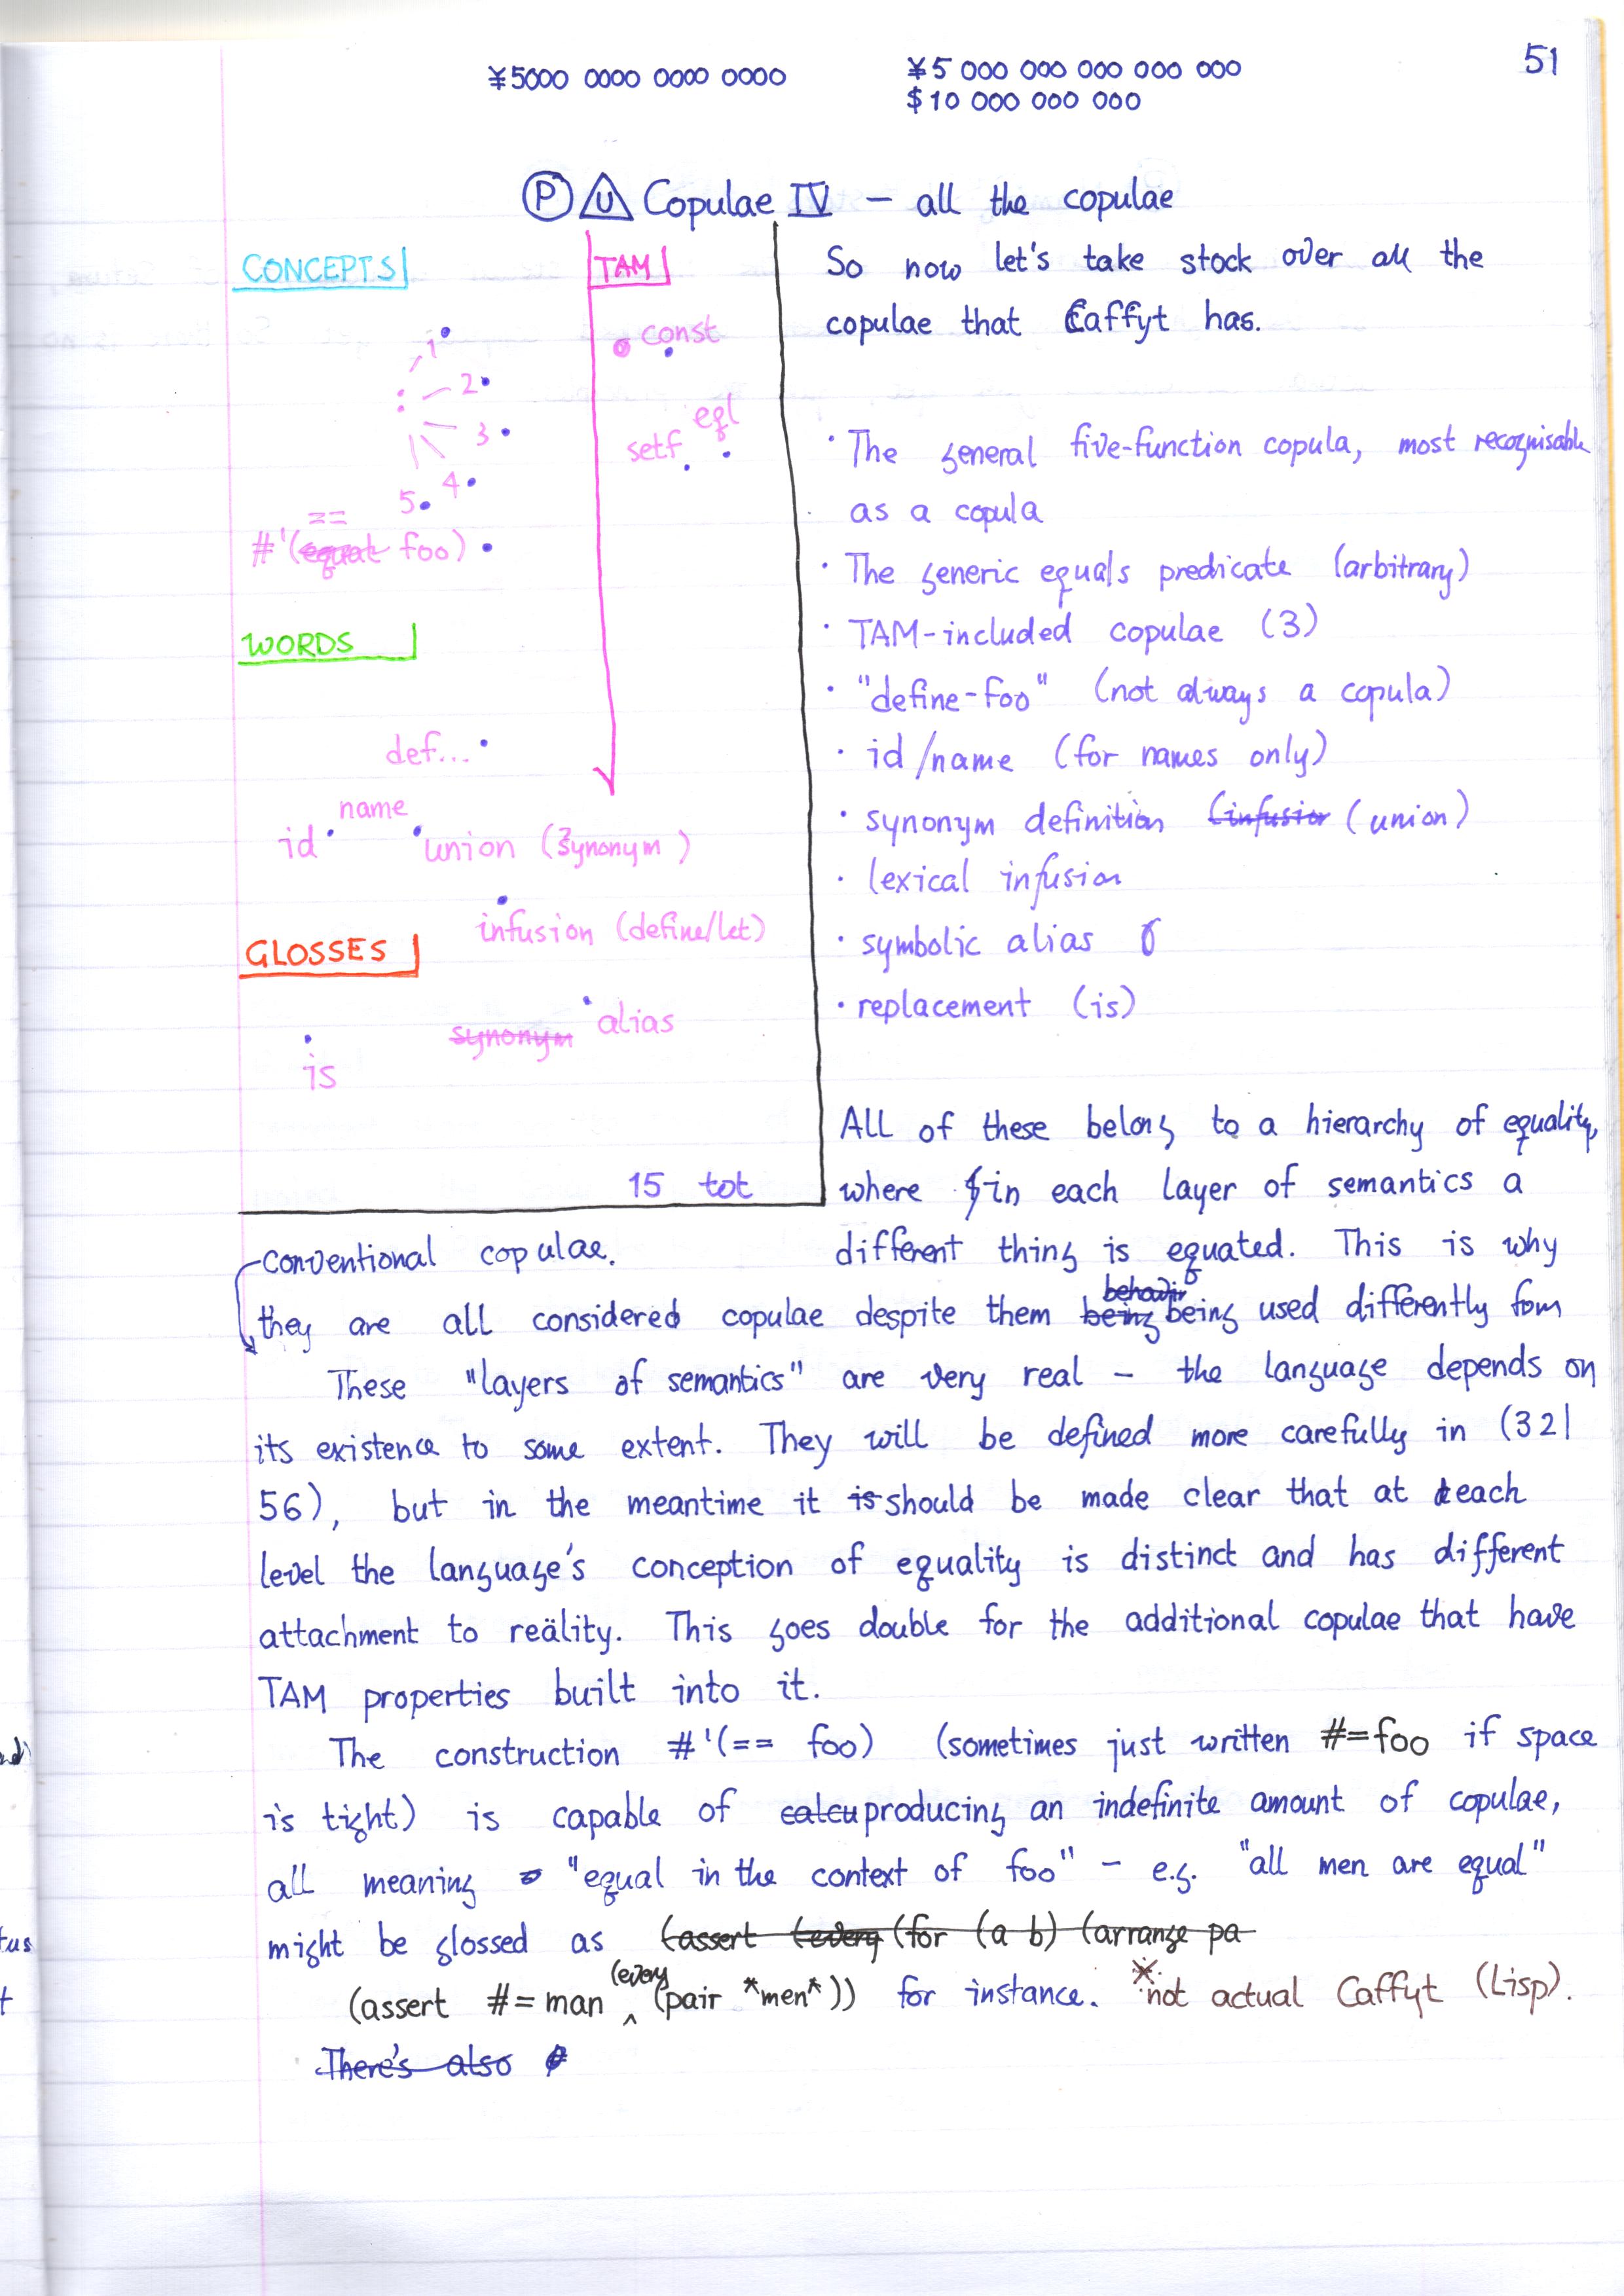 51
¥5000 0000 0000 0000
¥5 000 000 000 000 000
$10 000 000 000
P U Copulae IV – all the copulae
CONCEPTS
TAM
: 1
2
3
4
5
const
setf
eql
==
#'(equal foo)
WORDS
def...
id
name
union (synonym)
infusion (define/let)
GLOSSES
synonym alias
is
15 tot
So now let's take stock over all the
copulae that Caffyt has.
· The general five-function copula, most recognisable
as a copula
· The generic equals predicate (arbitrary)
· TAM-included copulae (3)
· "define-foo" (not always a copula)
· id/name (for names only)
· synonym definition (infusion (union)
· lexical infusion
· symbolic alias
· replacement (is)
All of these belong to a hierarchy of equality,
where in each layer of semantics a
different thing is equated. This is why
they are all considered copulae despite them being behavir being used differently fom
conventional copulae.
These "layers of semantics" are very real – the language depends on
its existence to some extent. They will be defined more carefully in (321
56), but in the meantime it is should be made clear that at each
level the language's conception of equality is distinct and has different
attachment to reälity. This goes double for the additional copulae that have
TAM properties built into it.
The construction #'(== foo) (sometimes just written #=foo if space
is tight) is capable of calcu producing an indefinite amount of copulae,
all meaning "equal in the context of foo" – e.g. "all men are equal"
might be glossed as (assert (every (for (a b) (arrange pa
(assert #=man (every (pair *men*)) for instance. *not actual Caffyt (Lisp).
There's also
nd)
tus
t